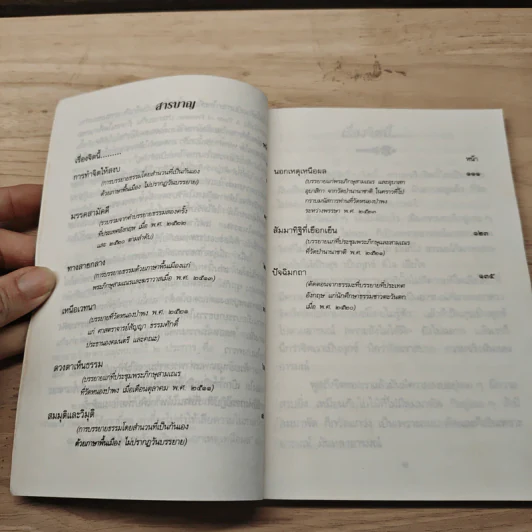 สารบาญ
เรื่องจิตนี้.........
การทำจิตให้สงบ
(การบรรยายธรรมโดยสำนวนที่เป็นกันเอง
ด้วยภาษาพื้นเมือง ไม่ปรากฏวันบรรยาย)
มรรคสามัคคี
(รวบรวมจากคำบรรยายธรรมสองครั้ง
ที่ประเทศอังกฤษ เมื่อ พ.ศ. ๒๕๒๒
และ ๒๕๒๐ ตามลำดับ)
ทางสายกลาง
(การบรรยายธรรมด้วยภาษาพื้นเมืองแก่
พระภิกษุสามเณรและฆราวาสเมื่อ พ.ศ. ๒๕๑๓)
เหนือเวทนา
(บรรยายที่วัดหนองป่าพง พ.ศ. ๒๕๒๑
แก่ ศาสตราจารย์สัญญา ธรรมศักดิ์
ประธานองคมนตรี และคณะ)
ดวงตาเห็นธรรม
(บรรยายแก่ที่ประชุมพระภิกษุสามเณร
ที่วัดหนองป่าพง เมื่อเดือนตุลาคม พ.ศ. ๒๕๑๑)
สมมุติและวิมุติ
(การบรรยายธรรมโดยสำนวนที่เป็นกันเอง
ด้วยภาษาพื้นเมือง ไม่ปรากฏวันบรรยาย)
หน้า
นอกเหตุเหนือผล ๑๑๑
(บรรยายแก่พระภิกษุสามเณร และอุบาสก
อุบาสิกา จากวัดป่านานาชาติ
กราบนมัสการท่านที่วัดหนองป่าพง
ระหว่างพรรษา พ.ศ. ๒๕๒๑
สัมมาทิฐิที่เยือกเย็น ๑๒๓
(บรรยายแก่ที่ประชุมพระภิกษุและสามเณร
ที่วัดป่านานาชาติ พ.ศ. ๒๕๒๑)
ปัจฉิมกถา ๑๓๕
(คัดตอนจากธรรมะที่บรรยายที่ประเทศ
อังกฤษ แก่นักศึกษาธรรมชาวตะวันตก
เมื่อ พ.ศ. ๒๕๒๐)